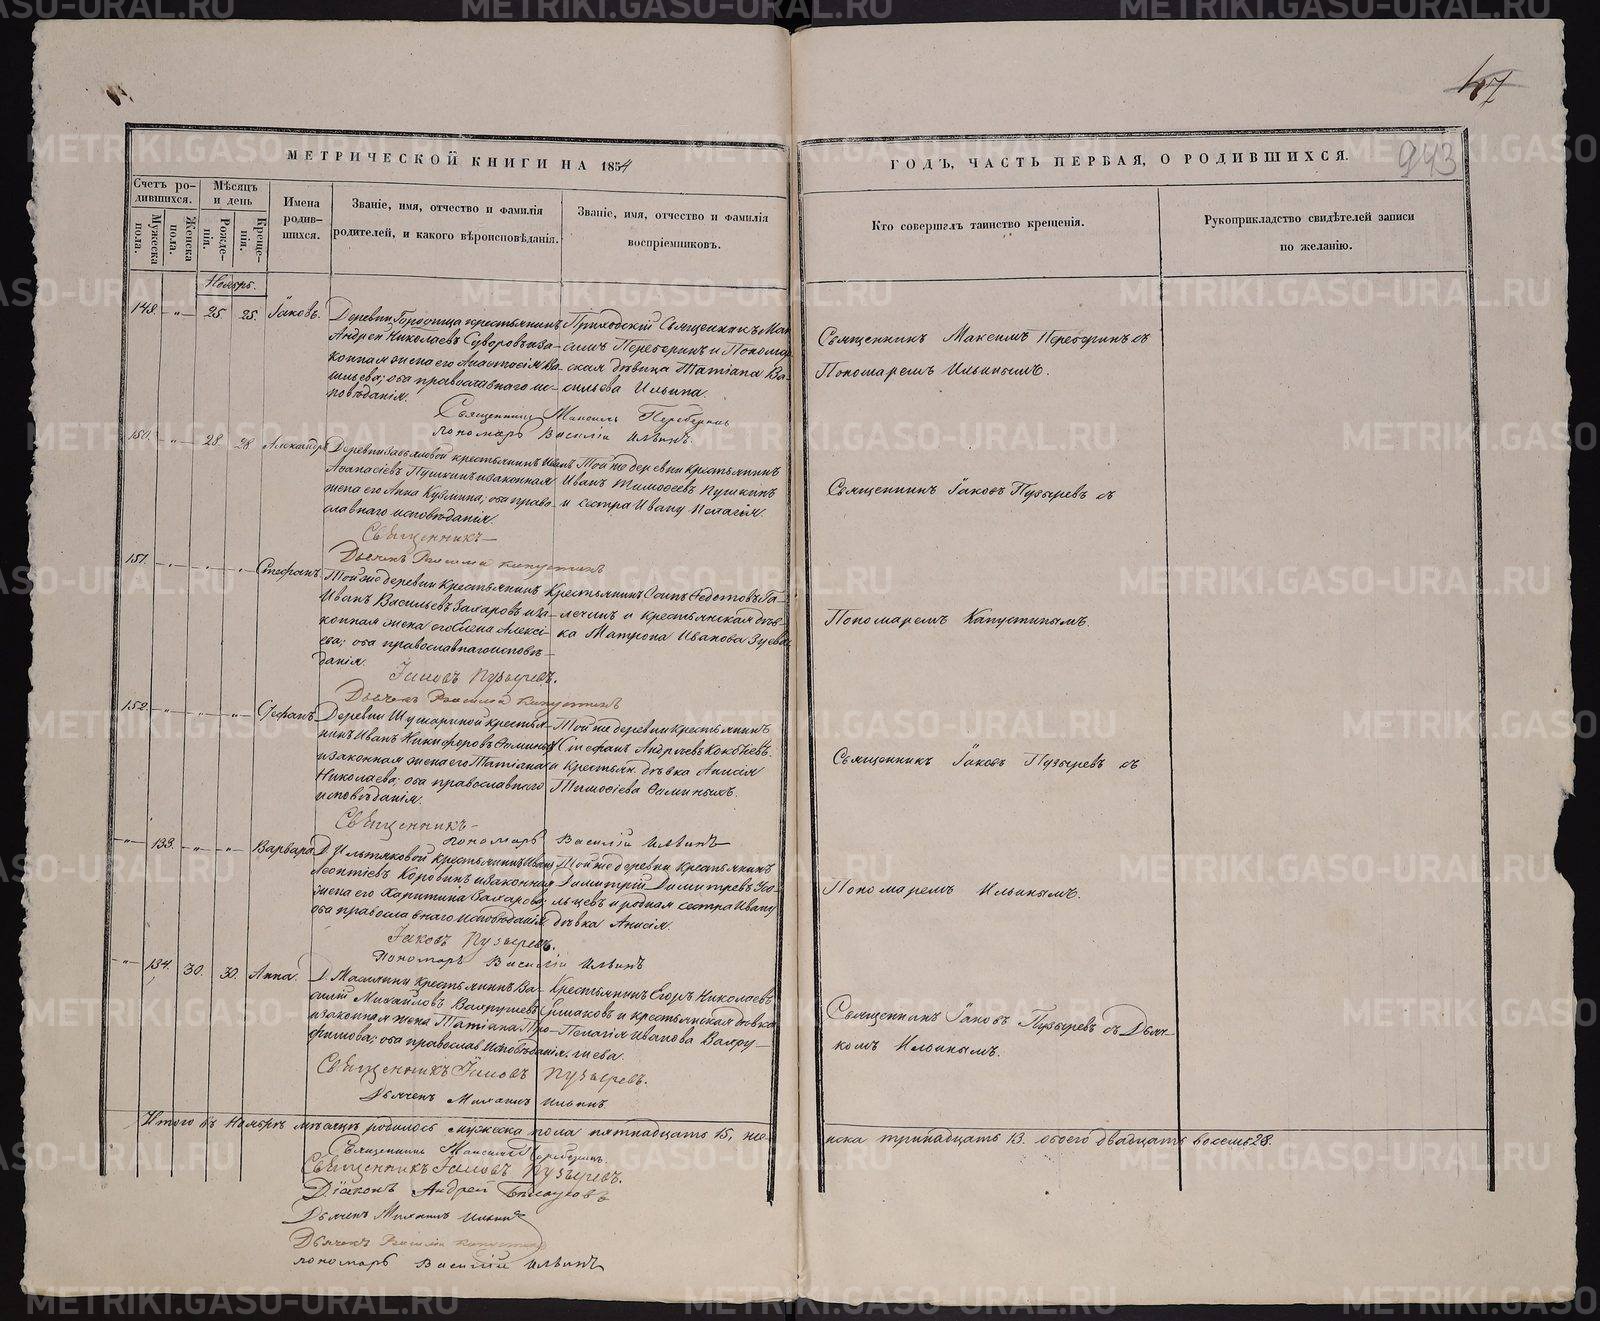 47
943
МЕТРИЧЕСКОЙ КНИГИ НА 1854
ГОДЪ, ЧАСТЬ ПЕРВАЯ, О РОДИВШИХСЯ.
Счетъ ро-
дившихся.
Мужеска
пола.
Женска
пола.
Мѣсяцъ
и день
Рожде-
нія.
Креще-
нія.
Имена
родив-
шихся.
Званіе, имя, отчество и фамилія
родителей, и какого вѣроисповѣданія.
Званіе, имя, отчество и фамилія
воспріемниковъ.
Кто совершалъ таинство крещенія.
Рукоприкладство свидѣтелей записи
по желанію.
Ноябрь.
149. „ 25. 25. Іаковъ.
Деревни Городища крестьянинъ
Андрей Николаевъ Суворовъ и за-
конная жена его Анастасія Ва-
сильева; оба православнаго ис-
повѣданія.
Приходскій Священникъ Мак-
симъ Переберинъ и Понома-
рская дѣвица Татіана Ва-
сильева Ильина.
Священникъ Максимъ Переберинъ съ
Пономаремъ Ильинымъ.
Священникъ Максимъ Переберинъ
пономарь Василій Ильинъ.
150. „ 28. 28. Александръ
крестьянинъ Иванъ
Аѳанасіевъ Пушкинъ и законная
жена его Анна Кузмина; оба право-
славнаго исповѣданія.
Той же деревни крестьянинъ
Иванъ Тимоѳеевъ Пушкинъ
и сестра Ивану Пелагія.
Священникъ Іаковъ Пузыревъ съ
Священникъ
Дьячекъ Василій Капустинъ
151. „ „ „ Стефанъ
Той же деревни крестьянинъ
Иванъ Васильевъ Захаровъ и за-
конная жена его Елена Алексі-
ева; оба православнаго исповѣ-
данія.
Крестьянинъ Федотовъ Га-
и крестьянская дѣв-
ка Матрона Иванова Зуева
Пономаремъ Капустинымъ.
Іаковъ Пузыревъ.
Дьячекъ Василій Капустинъ
152. „ „ „ Стефанъ
Деревни крестья-
нинъ Иванъ Никифоровъ Ѳоминыхъ
и законная жена его Татіана
Николаева; оба православнаго
исповѣданія.
Той же деревни крестьянинъ
Стефанъ Андреевъ
и крестьян. дѣвка Анисія
Тимоѳіева Ѳоминыхъ.
Священникъ Іаковъ Пузыревъ съ
Священникъ
пономарь Василій Ильинъ
„ 133. „ „ Варвара
Д. крестьянинъ Иванъ
Леонтіевъ Коровинъ и законная
жена его Харитина Захарова;
оба православнаго исповѣданія.
Той же деревни крестьянинъ
Димитрій Димитревъ
и родная сестра Ивану
дѣвка Анисія.
Пономаремъ Ильинымъ.
Іаковъ Пузыревъ.
Пономарь Василій Ильинъ
„ 134. 30. 30. Анна.
Д. крестьянинъ Ва-
силій Михайловъ Вахрушевъ
и законная жена Татіана Тро-
фимова; оба православ. исповѣданія.
Крестьянинъ Егоръ Николаевъ
Ермаковъ и крестьянская дѣвка
Пелагія Иванова Вахру-
шева.
Священникъ Іаковъ Пузыревъ съ Дьяч-
комъ Ильинымъ.
Священникъ Іаковъ Пузыревъ.
Дьячекъ Михаилъ Ильинъ
Итого въ Ноябрѣ мѣсяцѣ родилось мужеска пола пятнадцать 15, же-
нска тринадцать 13. обоего двадцать восемь 28.
Священникъ Максимъ Переберинъ.
Священникъ Іаковъ Пузыревъ.
Діаконъ Андрей
Дьячекъ Михаилъ Ильинъ
Дьячекъ Василій Капустинъ
пономарь Василій Ильинъ
METRIKI.GASO-URAL.RU